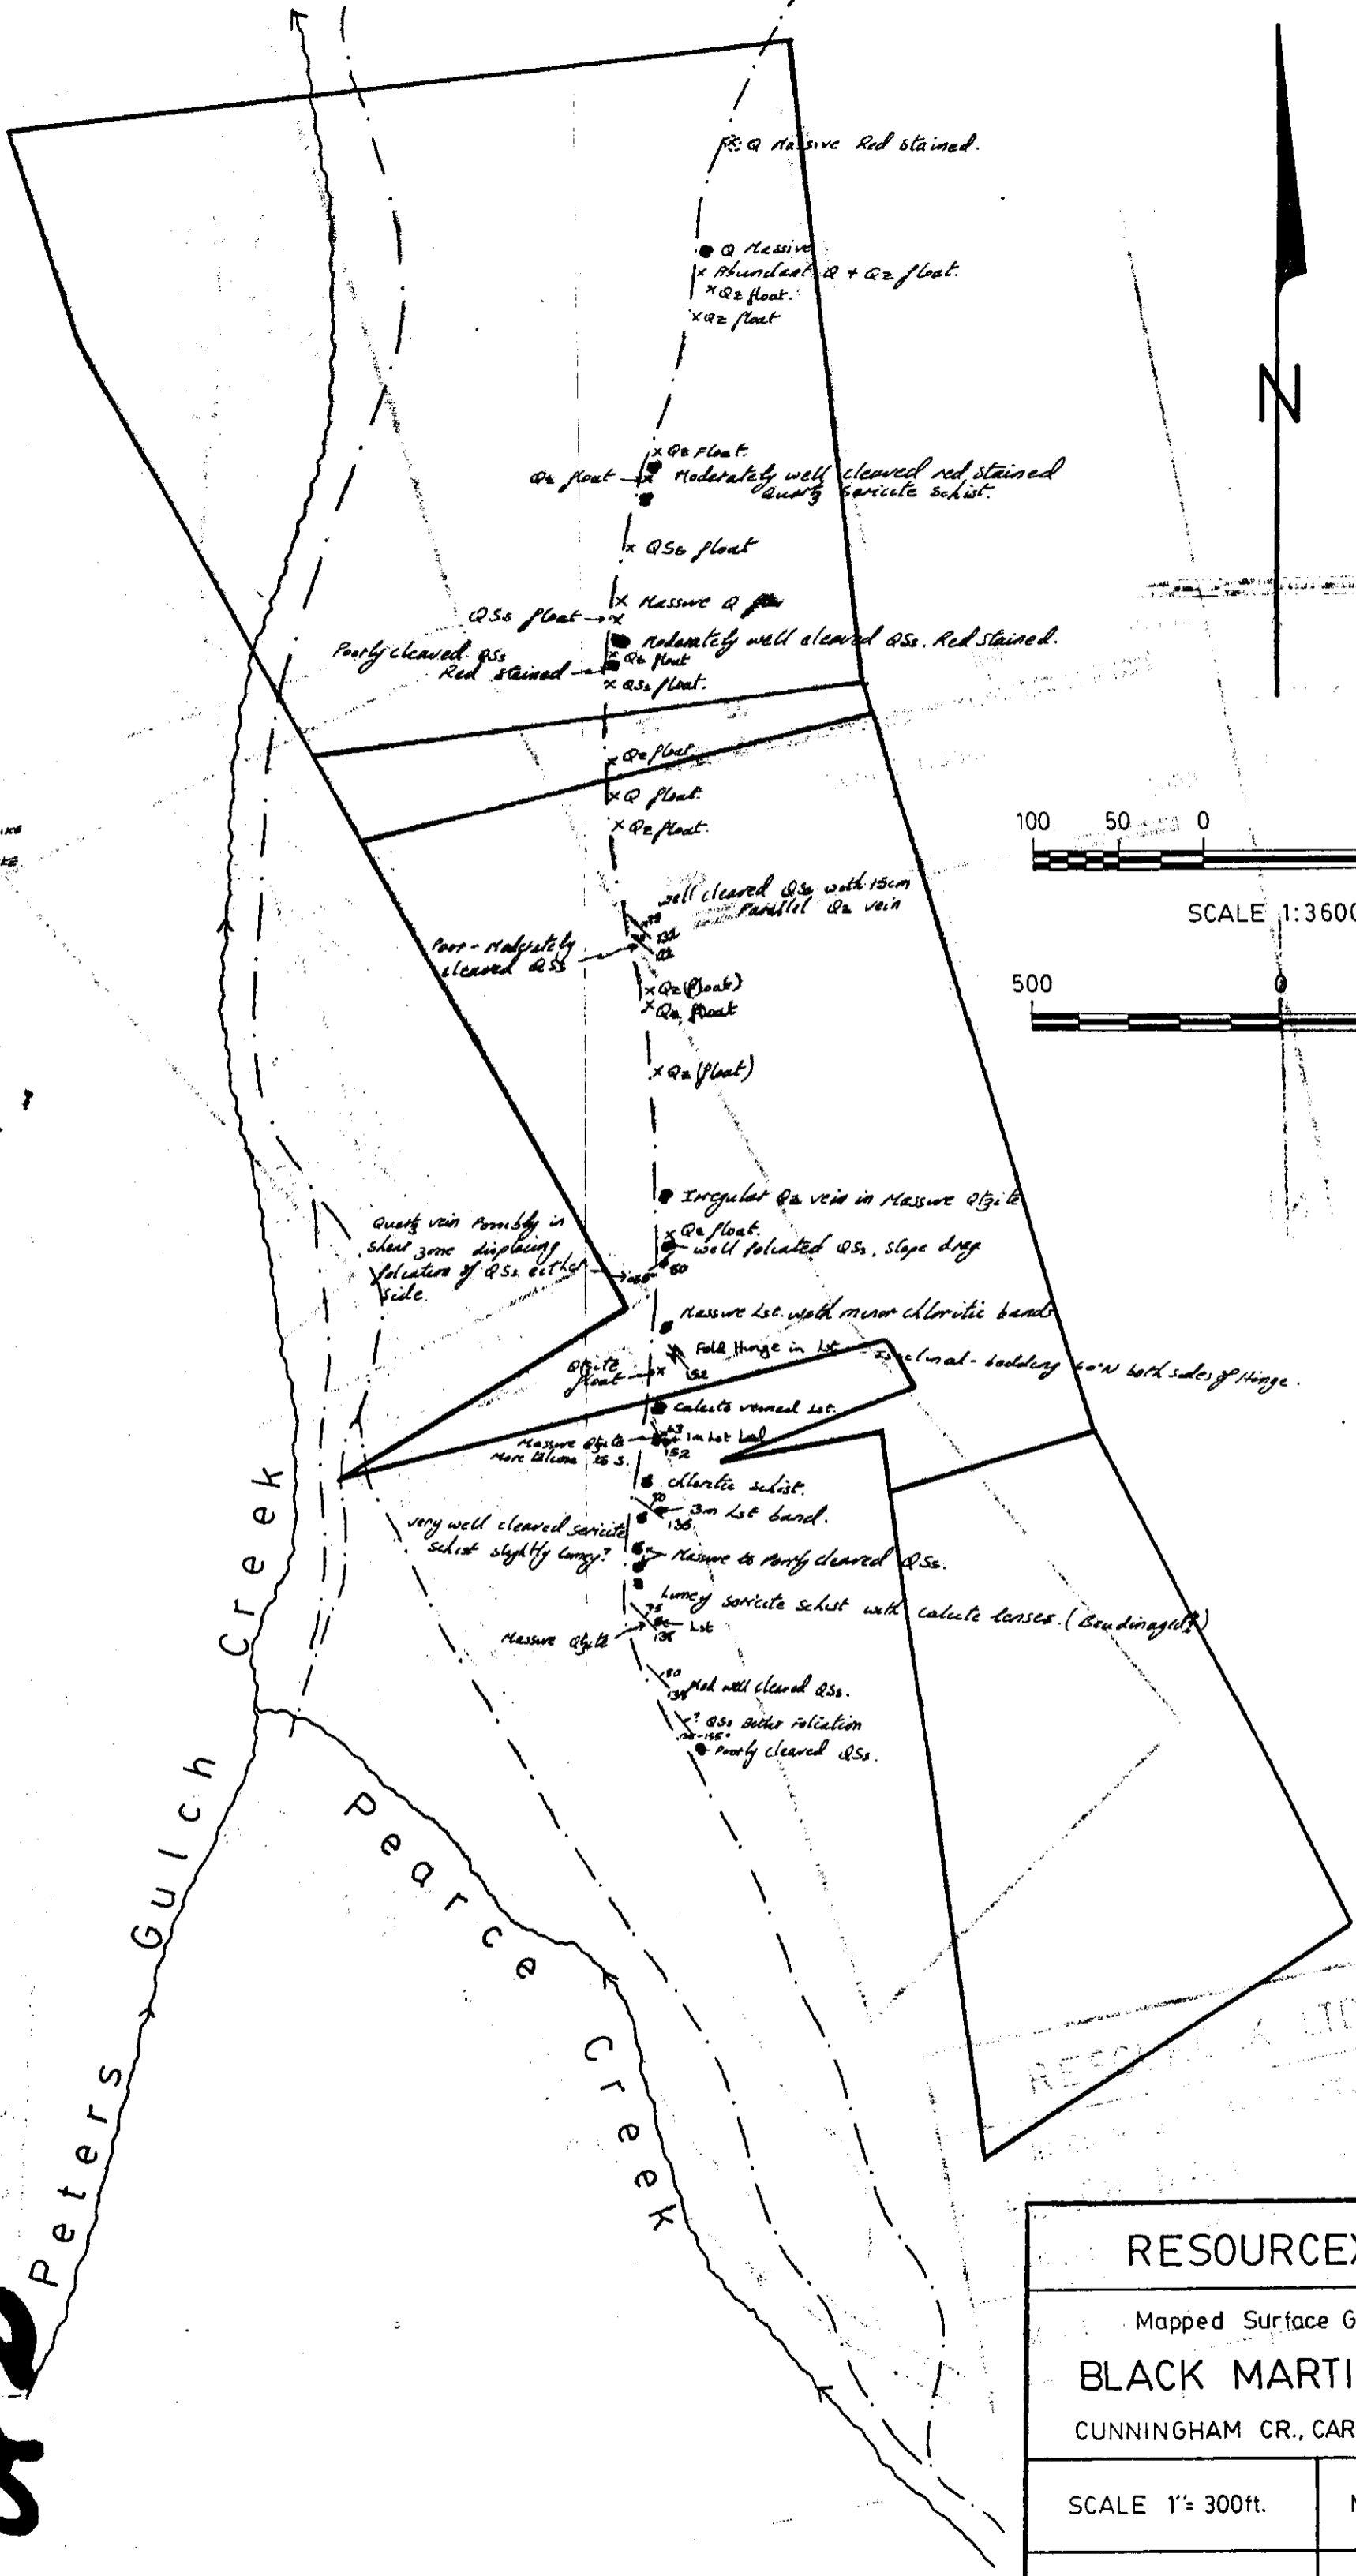 Q Massive Red stained.
Q Massive
Abundant Q + Qz float.
Qz float.
Qz float
N
Qz float.
Qz float
Moderately well cleaved red stained
Quartz sericite schist.
QSs float
Massive Q
QSs float
Moderately well cleaved QSs. Red stained.
Poorly cleaved QSs
Red stained
Qz float
QSs float.
Qz float
Q float.
Qz float.
100 50 0
SCALE 1:3600
500 0
well cleaved QSs with 15cm
Parallel Qz vein
Poor - Moderately
cleaved QSs
Qz (float)
Qz float
Qz (float)
Irregular Qz vein in Massive Qtzite
Qz float.
well foliated QSs, slope drag
60
Quartz vein Possibly in
shear zone displacing
foliation of QSs either
side.
Massive Lst. with minor chloritic bands
Fold Hinge in Lst - Isoclinal - bedding 60°N both sides of Hinge.
152
Qtzite
float
Calcite veined Lst.
Massive Qtzite
1m Lst
152
More to S.
chloritic schist.
3m Lst band.
136
very well cleaved sericite
schist slightly limey?
Massive to Poorly cleaved QSs.
Limey sericite schist with calcite lenses. (Boudinaged?)
75
Lst
Massive Qtzite
80
Mod well cleaved QSs.
? QSs Better Foliation
Poorly cleaved QSs.
Peters Gulch Creek
Pearce Creek
RESOURCEX
Mapped Surface G
BLACK MARTI
CUNNINGHAM CR., CAR
SCALE 1"= 300ft.